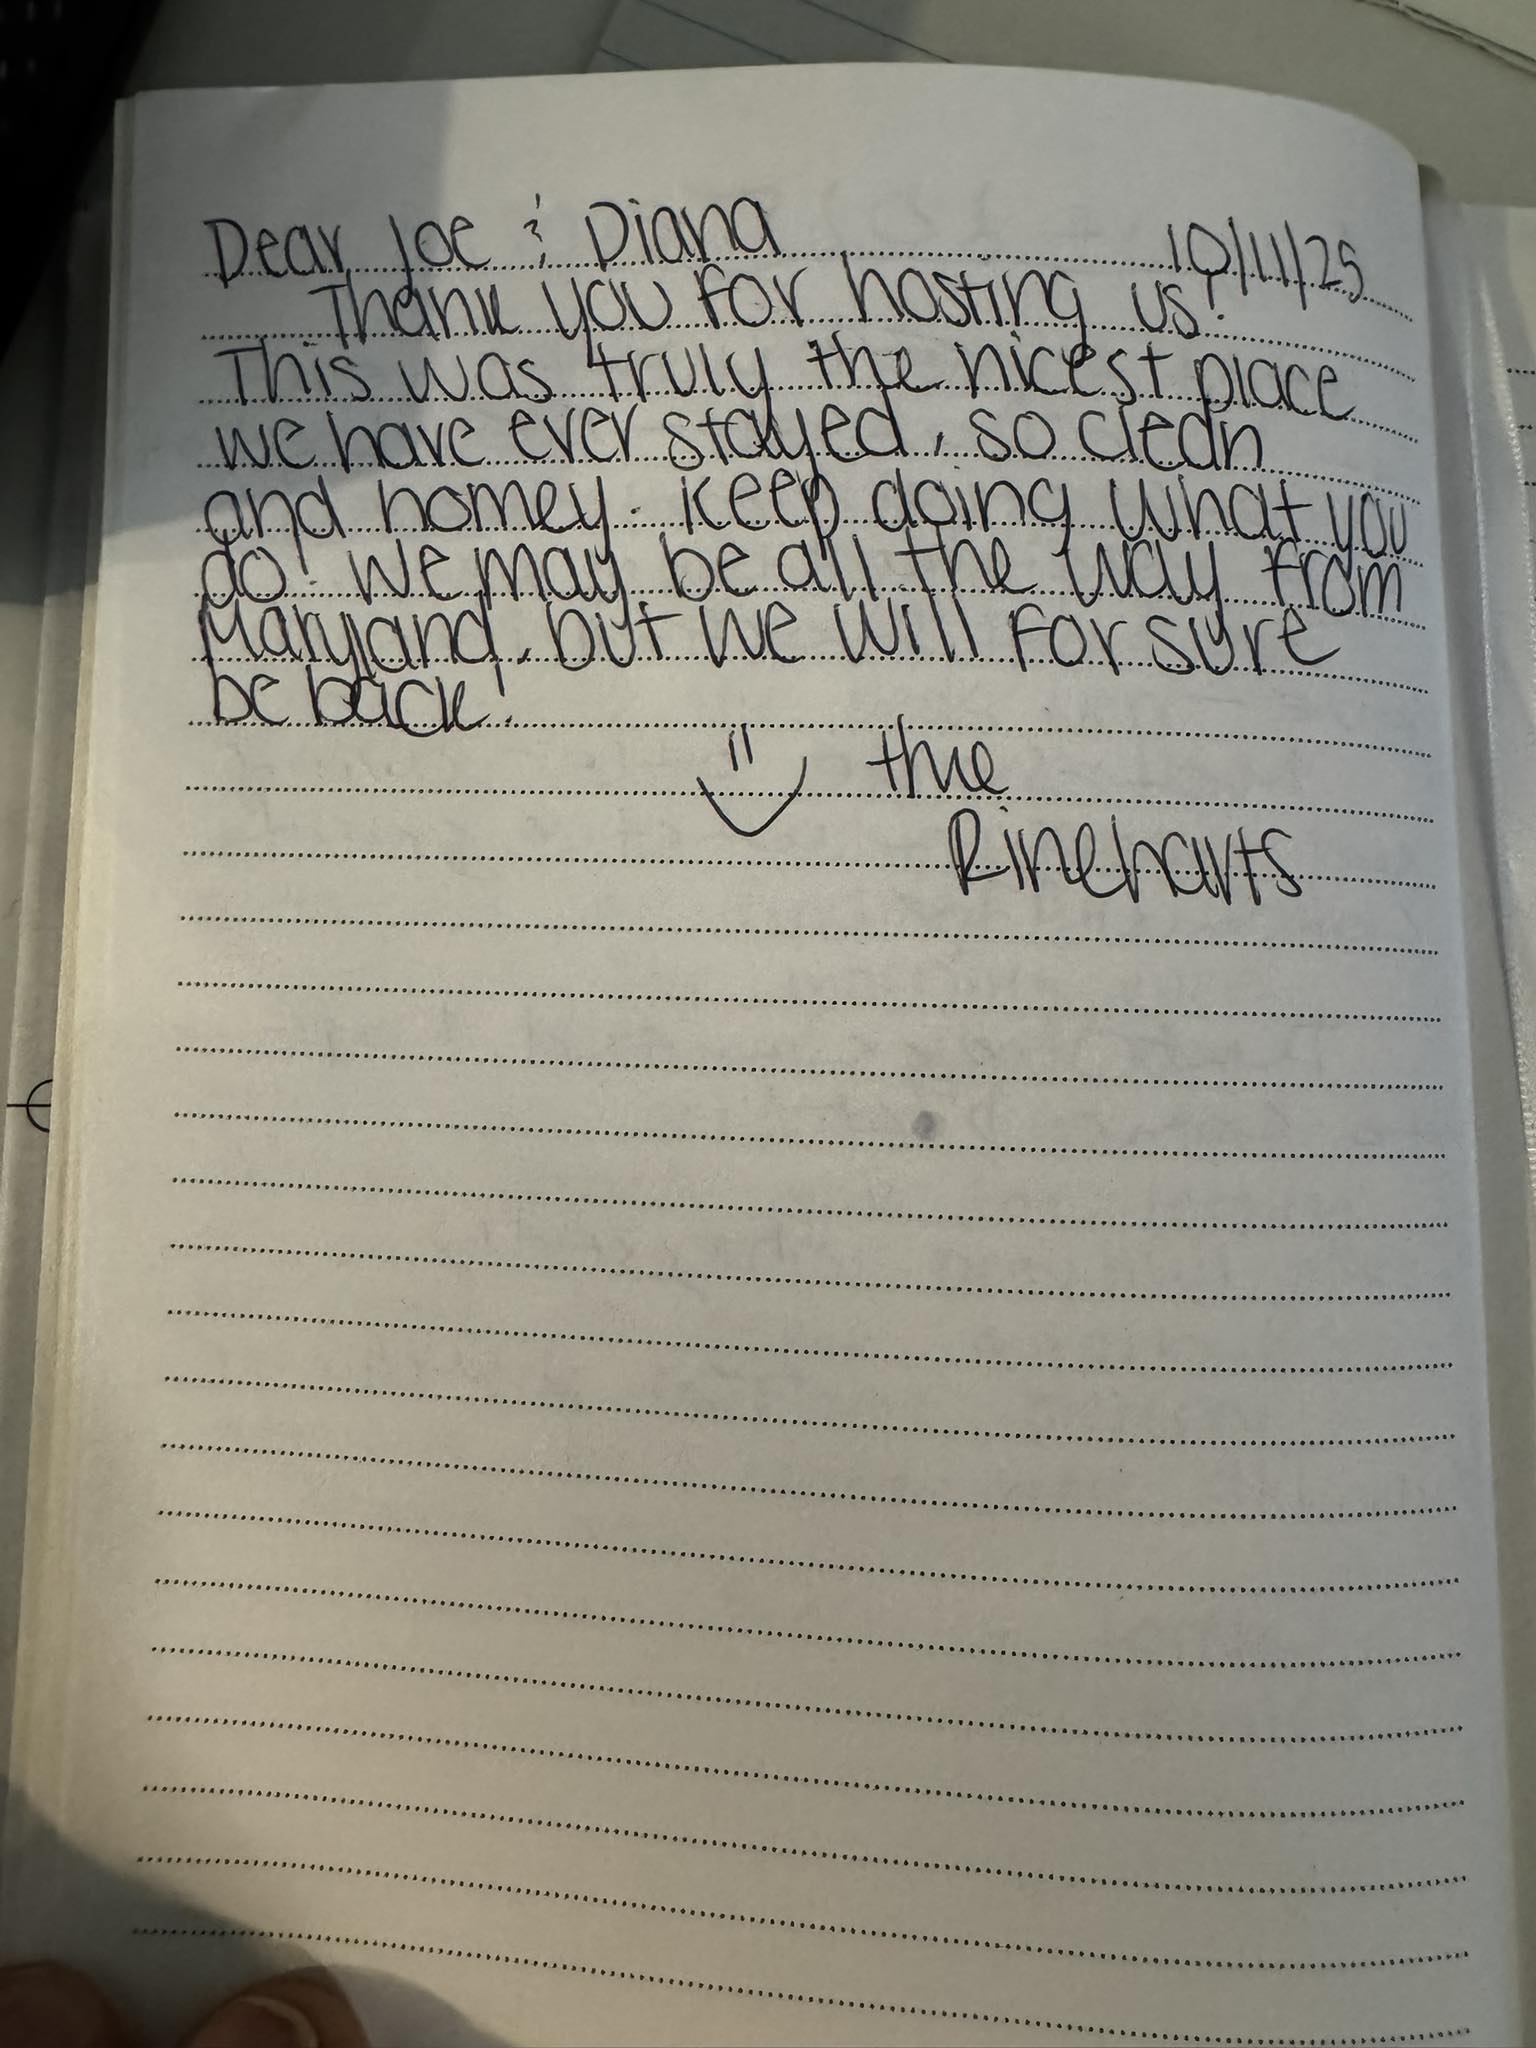 Dear Joe & Diana 10/11/25
Thank you for hosting us!
This was truly the nicest place
we have ever stayed, so clean
and homey. Keep doing what you
do! We may be all the way from
Maryland, but we will for sure
be back!
the
Rineharts